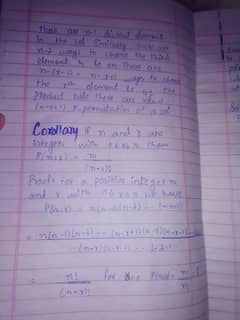 There are n-1 distinct element
in the set Similarly there are
n-2 ways to choose the third
element to be an There are
n-(r-1) = n-r+1 ways to choose
the r element by the
product rule there are
(n-r+1) r permutation of a set
Corollary If n and r are
integers with 0≤r≤n then
P(n,r) = n!
(n-r)!
Proof: for a positive integer n
and r with 0≤r≤n we have
P(n,r) = n(n-1)(n-2) -- (n-r+1)
= n(n-1)(n-2) -- (n-r+1)(n-r)(n-r-1)
(n-r)(n-r-1) -- 3.2.1
= n! for
(n-r)!